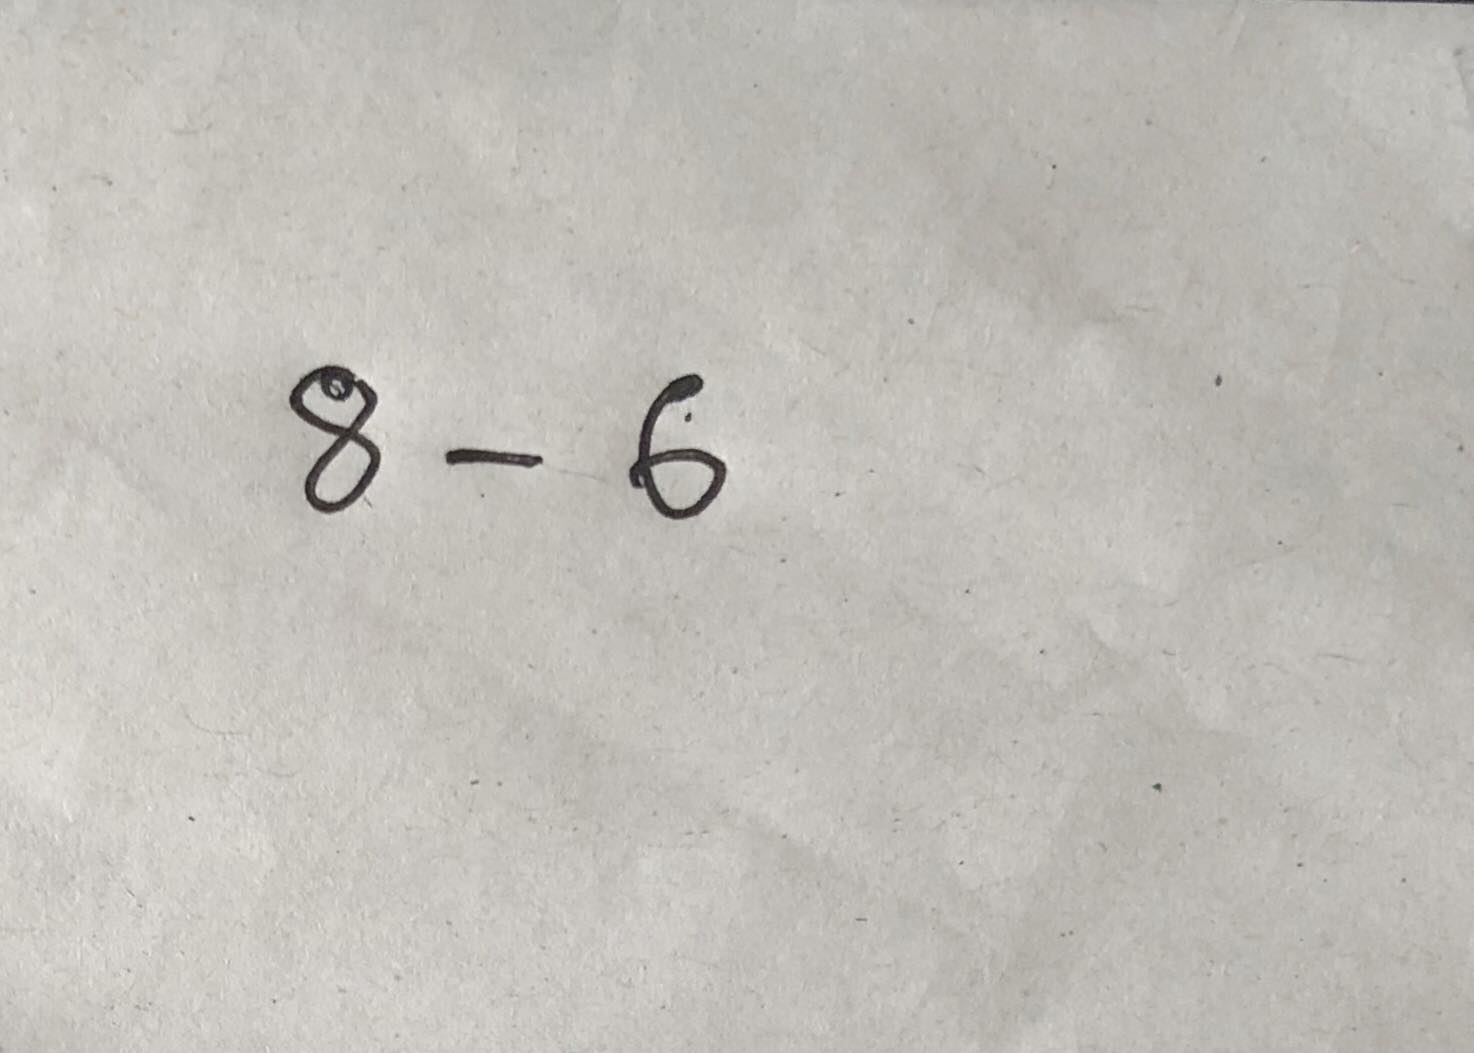 8 - 6